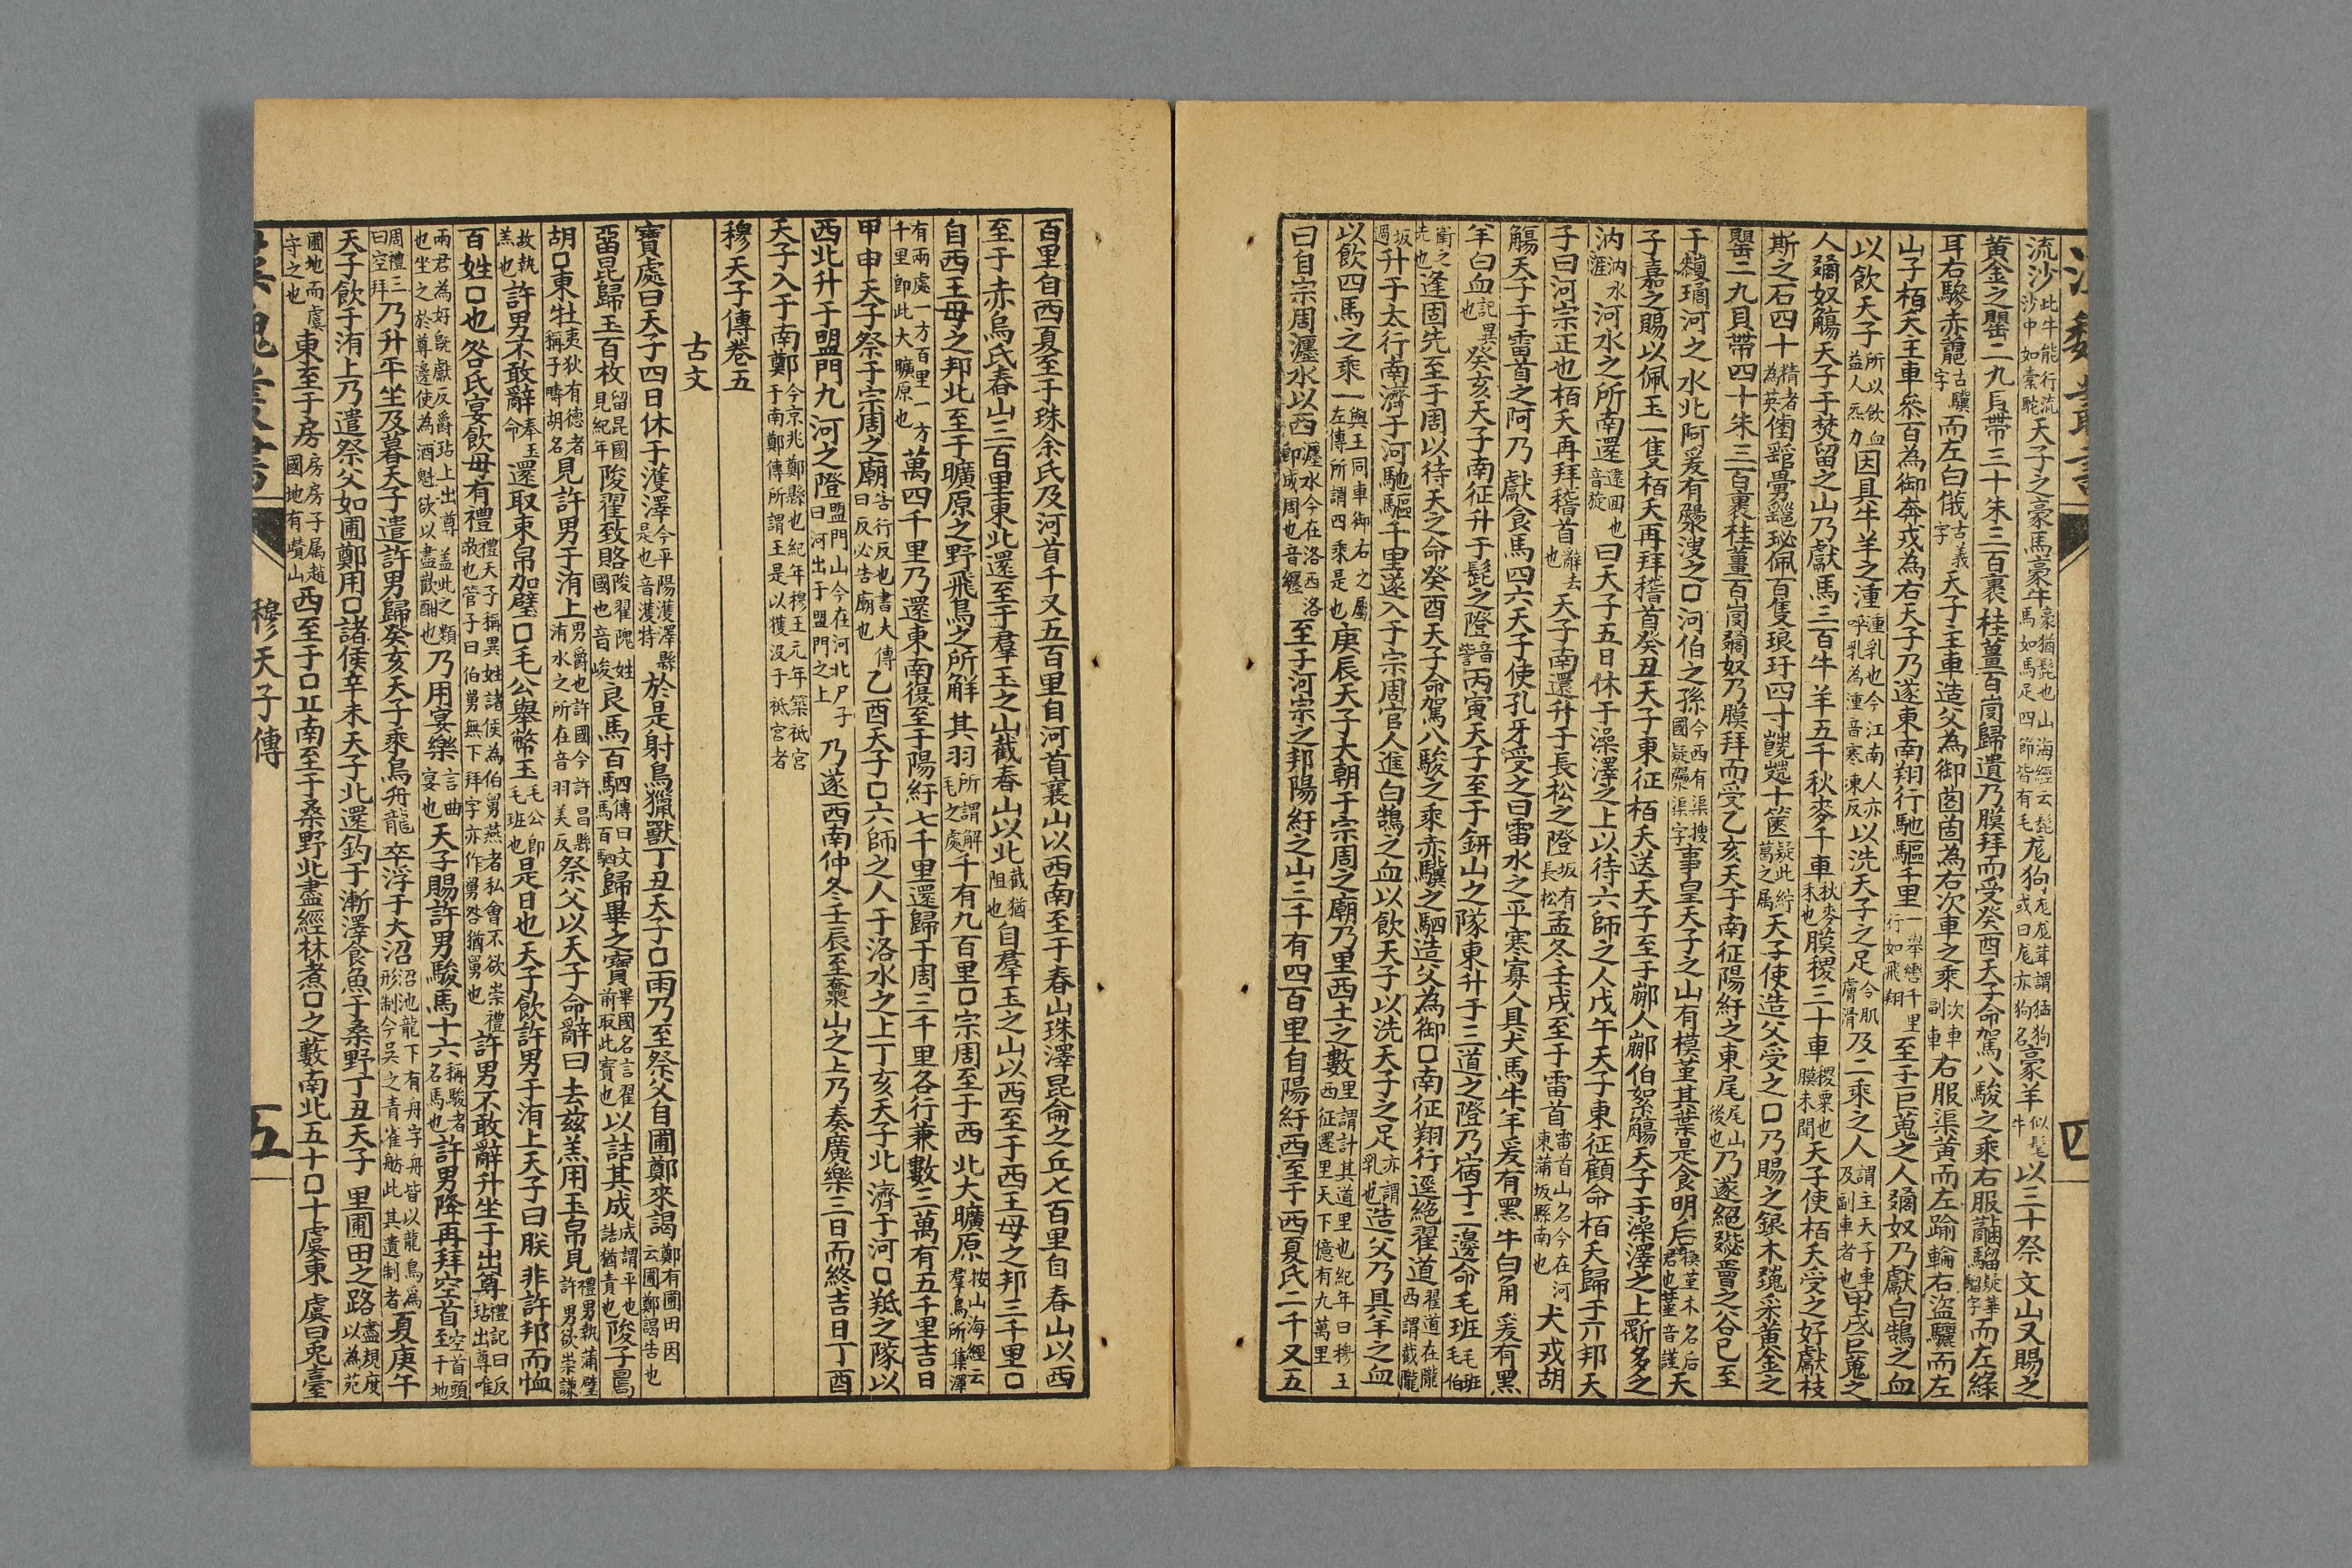 流沙此牛能行流沙中如橐駝天子之豪馬豪牛豪猶髭也山海經云髭馬如馬足四節皆有毛尨狗尨尨茸謂猛狗或曰尨亦狗名豪羊似髦牛以三十祭文山又賜之
黃金之罌二九貝帶三十朱三百裹桂薑百崗歸遺乃膜拜而受癸酉天子命駕八駿之乘右服而左綠
耳右驂赤古驥字而左白俄古義字天子主車造父為御為右次車之乘次車副車右服渠黃而左踰輪右盜驪而左
山子栢夭主車參百為御奔戎為右天子乃遂東南翔行馳驅千里一舉轡千里行如飛翔至于巨蒐之人奴乃獻白鵠之血
以飲天子所以飲血益人炁力因具牛羊之湩湩乳也今江南人亦呼乳為湩音寒凍反以洗天子之足令肌膚滑及二乘之人謂主天子車及副車者也甲戌巨蒐之
人奴觴天子于焚留之山乃獻馬三百牛羊五千秋麥千車秋麥禾也膜稷三十車稷粟也膜未聞天子使栢夭受之好獻枝
斯之石四十精者為英珌佩百隻琅玕四十十篋疑此紵葛之屬天子使造父受之囗乃賜之銀木采黃金之
罌二九貝帶四十朱三百裹桂薑百崗奴乃膜拜而受乙亥天子南征陽紆之東尾尾山後也乃遂絕之谷已至
于河之水北阿爰有之囗河伯之孫今西有渠搜國疑渠字事皇天子之山有模堇其葉是食明后模堇木名后君也堇音謹天
子嘉之賜以佩玉一隻栢夭再拜稽首癸丑天子東征栢夭送天子至于人伯絮觴天子于澡澤之上多之
汭汭水涯河水之所南還還回也音旋曰天子五日休于澡澤之上以待六師之人戊午天子東征顧命栢夭歸于丌邦天
子曰河宗正也栢夭再拜稽首辭去也天子南還升于長松之隥坂有長松孟冬壬戌至于雷首雷首山名今在河東蒲坂縣南也犬戎胡
觴天子于雷首之阿乃獻食馬四六天子使孔牙受之曰雷水之平寒寡人具犬馬牛羊爰有黑牛白角爰有黑
羊白血記異也癸亥天子南征升于髭之隥音訾丙寅天子至于鈃山之隊東升于三道之隥乃宿于二邊命毛班毛班毛伯
衛之先也逢固先至于周以待天之命癸酉天子命駕八駿之乘赤驥之駟造父為御囗南征翔行逕絕翟道翟道在隴西謂截隴
坂過升于太行南濟于河馳驅千里遂入于宗周官人進白鵠之血以飲天子以洗天子之足亦謂乳也造父乃具羊之血
以飲四馬之乘一與王同車御右之屬左傳所謂四乘是也庚辰天子大朝于宗周之廟乃里西土之數里謂計其道里也紀年曰穆王西征還里天下億有九萬里
曰自宗周瀍水以西瀍水今在洛西洛即成周也音纏至于河宗之邦陽紆之山三千有四百里自陽紆西至于西夏氏二千又五
百里自西夏至于珠余氏及河首千又五百里自河首襄山以西南至于舂山珠澤昆侖之丘七百里自舂山以西
至于赤烏氏舂山三百里東北還至于羣玉之山截舂山以北截猶阻也自羣玉之山以西至于西王母之邦三千里囗
自西王母之邦北至于曠原之野飛鳥之所解其羽所謂解毛之處千有九百里囗宗周至于西北大曠原按山海經云羣鳥所集澤
有兩處一方百里一方千里即此大曠原也萬四千里乃還東南復至于陽紆七千里還歸于周三千里各行兼數三萬有五千里吉日
甲申天子祭于宗周之廟告行反也書大傳曰反必告廟也乙酉天子囗六師之人于洛水之上丁亥天子北濟于河囗羝之隊以
西北升于盟門九河之隥盟門山今在河北尸子曰河出于盟門之上乃遂西南仲冬壬辰至山之上乃奏廣樂三日而終吉日丁酉
天子入于南鄭今京兆鄭縣也紀年穆王元年築祇宮于南鄭傳所謂王是以獲沒于祇宮者
穆天子傳卷五
古文
寶處曰天子四日休于濩澤今平陽濩澤縣是也音濩特於是射鳥獵獸丁丑天子囗雨乃至祭父自圃鄭來謁鄭有圃田因云圃鄭謁告也
留昆歸玉百枚留昆國見紀年陖翟致賂陖翟隗姓國也音峻良馬百駟傳曰文馬百駟歸畢之寶畢國名言翟前取此寶也以詰其成成謂平也詰猶責也陖子
胡囗東牡夷狄有德者稱子疇胡名見許男于洧上男爵也許國今許昌縣洧水之所在音羽美反祭父以天子命辭曰去茲羔用玉帛見禮男執蒲璧許男欲崇謙
故執羔也許男不敢辭奉王命還取束帛加璧囗毛公舉幣玉毛公即毛班也是日也天子飲許男于洧上天子曰朕非許邦而恤
百姓囗也咎氏宴飲毋有禮禮天子稱異姓諸侯為伯舅燕者私會不欲崇禮敬也管子曰伯舅無下拜字亦作舅咎猶舅也許男不敢辭升坐于出尊禮記曰反坫出尊唯
兩君為好既獻反爵坫上出尊蓋此之類也坐之於尊邊使為酒魁欲以盡歡酣也乃用宴樂言曲宴也天子賜許男駿馬十六稱駿者名馬也許男降再拜空首空首頭至于地
周禮三曰空拜乃升平坐及暮天子遣許男歸癸亥天子乘鳥舟龍卒浮于大沼沼池龍下有舟字舟皆以龍鳥為形制今吳之青雀舫此其遺制者夏庚午
天子飲于洧上乃遣祭父如圃鄭用囗諸侯辛未天子北還釣于漸澤食魚于桑野丁丑天子里圃田之路盡規度以為苑
圃地而虞守之也東至于房房房子屬趙國地有嶜山西至于囗丘南至于桑野北盡經林煮囗之藪南北五十囗十虞東虞曰兔臺
穆天子傳
四
五